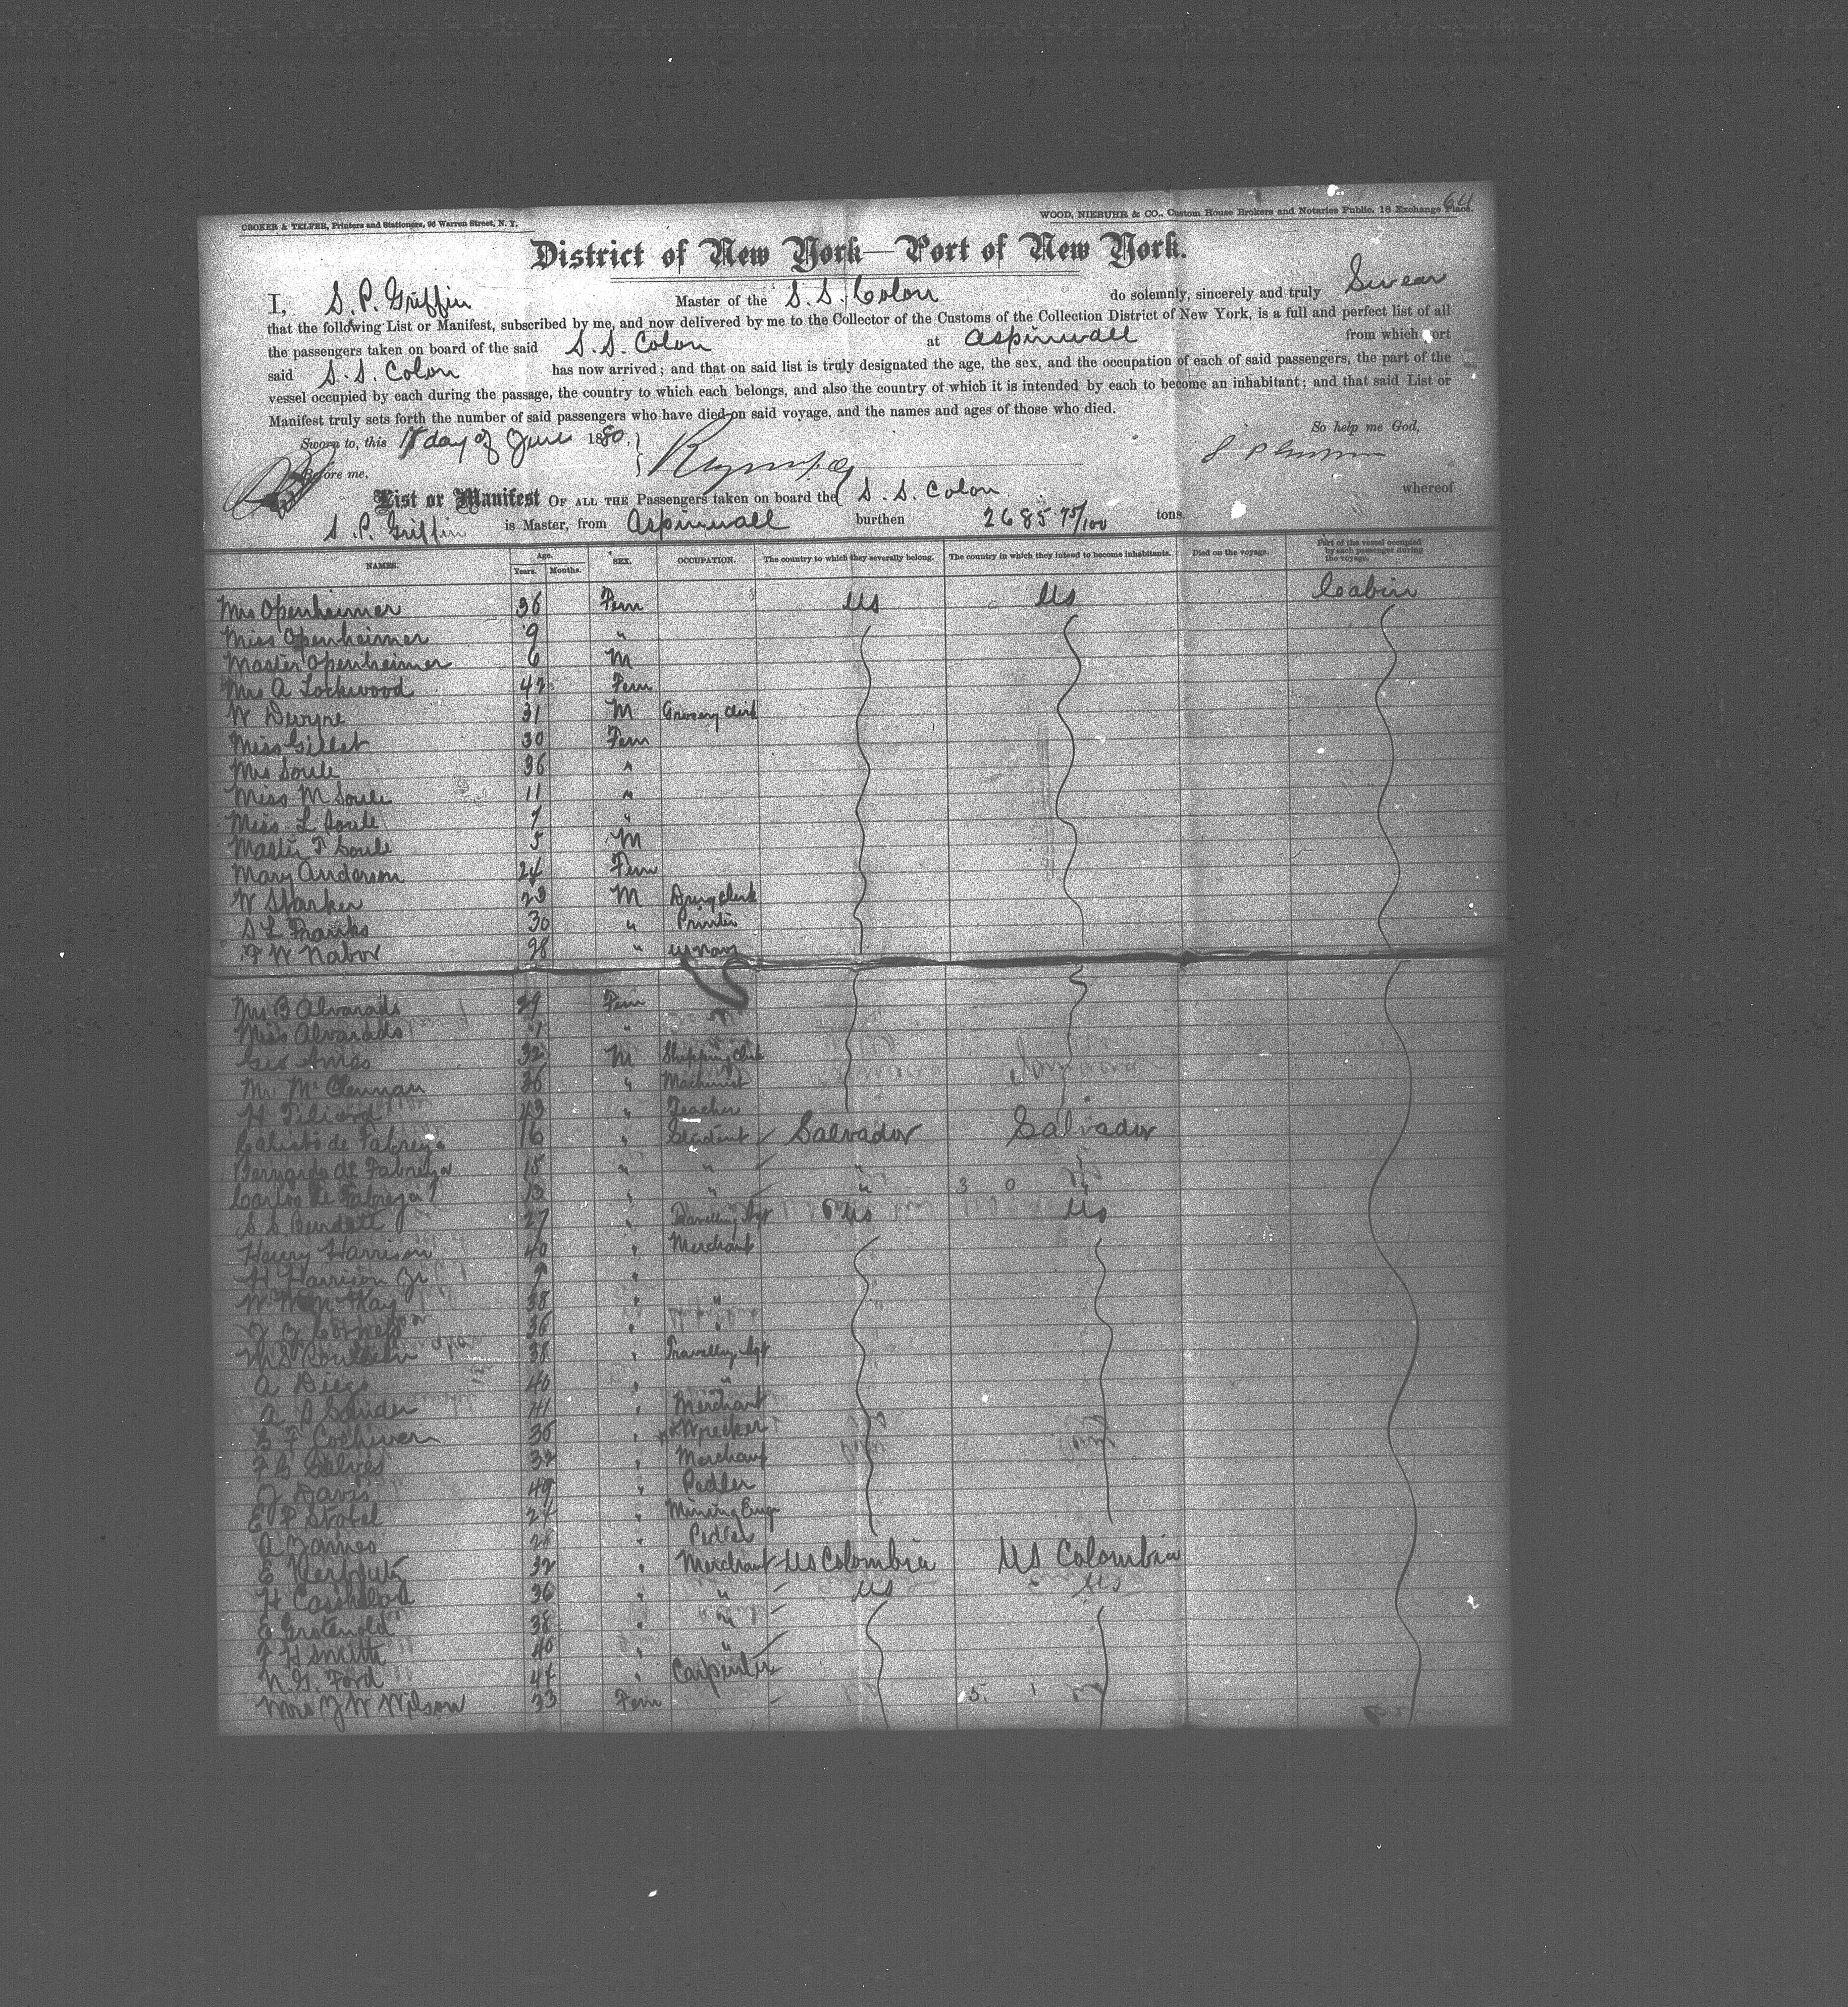 CROKER & TELFER, Printers and Stationers, 96 Warren Street, N. Y.
WOOD, NIEBUHR & CO., Custom House Brokers and Notaries Public, 18 Exchange Place.
District of New York—Port of New York.
I, S. P. Griffin Master of the S. S. Colon do solemnly, sincerely and truly Swear
that the following List or Manifest, subscribed by me, and now delivered by me to the Collector of the Customs of the Collection District of New York, is a full and perfect list of all
the passengers taken on board of the said S. S. Colon at Aspinwall from which ort
said S. S. Colon has now arrived; and that on said list is truly designated the age, the sex, and the occupation of each of said passengers, the part of the
vessel occupied by each during the passage, the country to which each belongs, and also the country of which it is intended by each to become an inhabitant; and that said List or
Manifest truly sets forth the number of said passengers who have died on said voyage, and the names and ages of those who died.
So help me God,
Sworn to, this day of June 1880.
Before me.
List or Manifest OF ALL THE Passengers taken on board the S. S. Colon whereof
S. P. Griffin is Master, from Aspinwall burthen 2685 75/100 tons.
NAMES. Age. Years. Months. SEX. OCCUPATION. The country to which they severally belong. The country in which they intend to become inhabitants. Died on the voyage. Part of the vessel occupied by each passenger during the voyage.
Mrs Openheimer 36 Fem US US Cabin
Miss Openheimer 9 "
Master Openheimer 6 M
Mrs A Lockwood 42 Fem
W Dwyne 31 M Grocery Clerk
Miss Gillet 30 Fem
Mrs Soule 36 "
Miss M Soule 11 "
Miss L Soule 7 "
Master F Soule 5 M
Mary Anderson 24 Fem
W Sharker 23 M Drug Clerk
S L Franks 30 " Printer
F W Nabor 28 " US Navy
Mrs B Alvarado 29 Fem
Miss Alvarado "
Geo Amos 32 M Shipping Clerk
Mr McClennan 36 " Machinist
H Tiliord 43 " Teacher
Calisto de Fabrega 16 " Student Salvador Salvador
Bernardo de Fabrega 15 " " " "
Carlos de Fabrega 13 " " " "
S S Burdett 27 " Travelling Agt US US
Henry Harrison 40 " Merchant
H Harrison Jr "
McKay 38 " "
36 " "
38 " Travelling Agt
A Diego 40 " "
A S Sander 41 " Merchant
Cochiver 36 " Wrecker
Galves 32 " Merchant
J Davis 49 " Pedler
E P Strobel 24 " Mining Eng
A 28 " Pedler
E 32 " Merchant US Colombia US Colombia
H 36 " " US US
E Grotenold 38 " "
F H Smith 40 " "
N. G. Ford 44 " Carpenter
Mrs J W Wilson 33 Fem